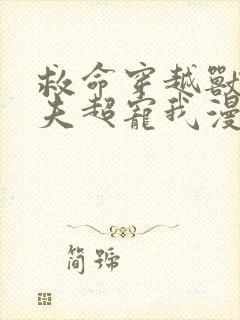 救命穿越獸
夫超寵我漫
简號